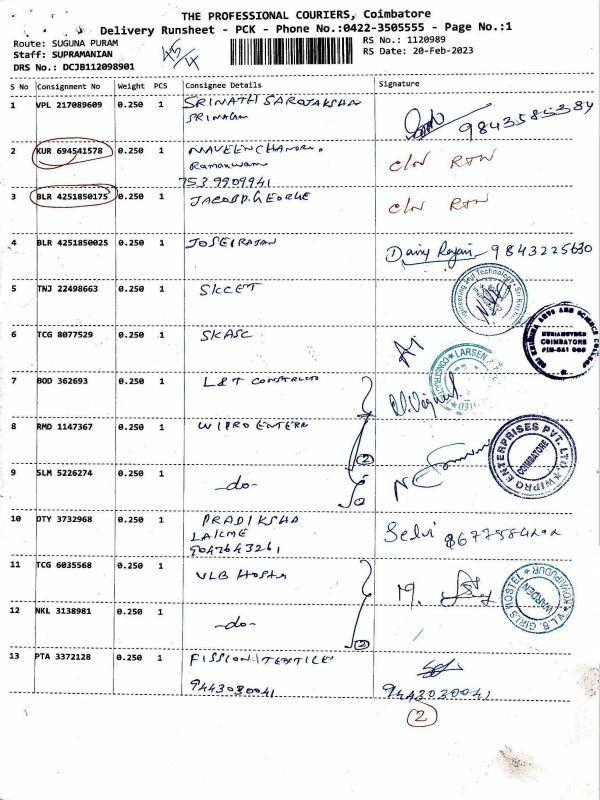 THE PROFESSIONAL COURIERS, Coimbatore
Delivery Runsheet - PCK - Phone No.:0422-3505555 - Page No.:1
Route: SUGUNA PURAM
RS No.: 1120989
Staff: SUPRAMANIAN
RS Date: 20-Feb-2023
DRS No.: DCJB112098901
S No Consignment No Weight PCS Consignee Details Signature
1 VPL 217089609 0.250 1 SRINATH SAROJAKSHA
9843585384
2 KUR 694541578 0.250 1 NAVEENCHANDRA
753 9909941
3 BLR 4251850175 0.250 1 JACOB P. GEORGE
4 BLR 4251850025 0.250 1 JOSEIRAJAN
9843225630
5 TNJ 22498663 0.250 1 SKCET
6 TCG 8077529 0.250 1 SKASC
COIMBATORE
7 BOD 362693 0.250 1 L&T
LARSEN
8 RMD 1147367 0.250 1 WIPRO ENTERN
2
WIPRO ENTERPRISES PVT. LTD.
COIMBATORE
9 SLM 5226274 0.250 1 -do-
10 DTY 3732968 0.250 1 PRADIKSHA
LAKME
9047643261
Selvi
11 TCG 6035568 0.250 1 VLB
V.L.B. GIRLS HOSTEL
WARDEN
12 NKL 3138981 0.250 1 -do-
2
13 PTA 3372128 0.250 1 FISSION TEXTILE
9443030041
9443030041
2